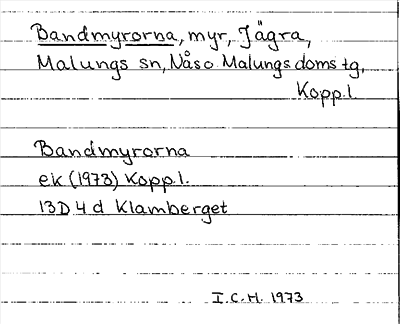 Bandmyrorna, myr, Jägra,
Malungs sn, Nås o. Malungs doms tg,
Kopp. l.
Bandmyrorna
ek (1973) Kopp. l.
13D 4 d Klamberget
I.C.H. 1973